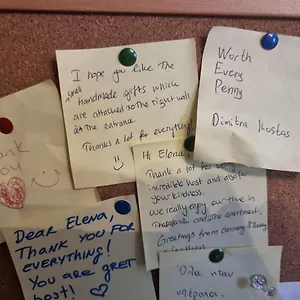 I hope you like the
small handmade gifts which
are attached to the right wall
at the entrance.
Thanks a lot for everything!
Worth
Every
Penny
Dimitra Kostas
Hi Elena,
Thank a lot for
incredible host and also for
your kindness.
we really enjoy our time in
and the apartment.
Greetings from Germany
Dear Elena,
THANK YOU FOR
EVERYTHING!
You are gret
host!
Όλα ήταν
υπέροχα